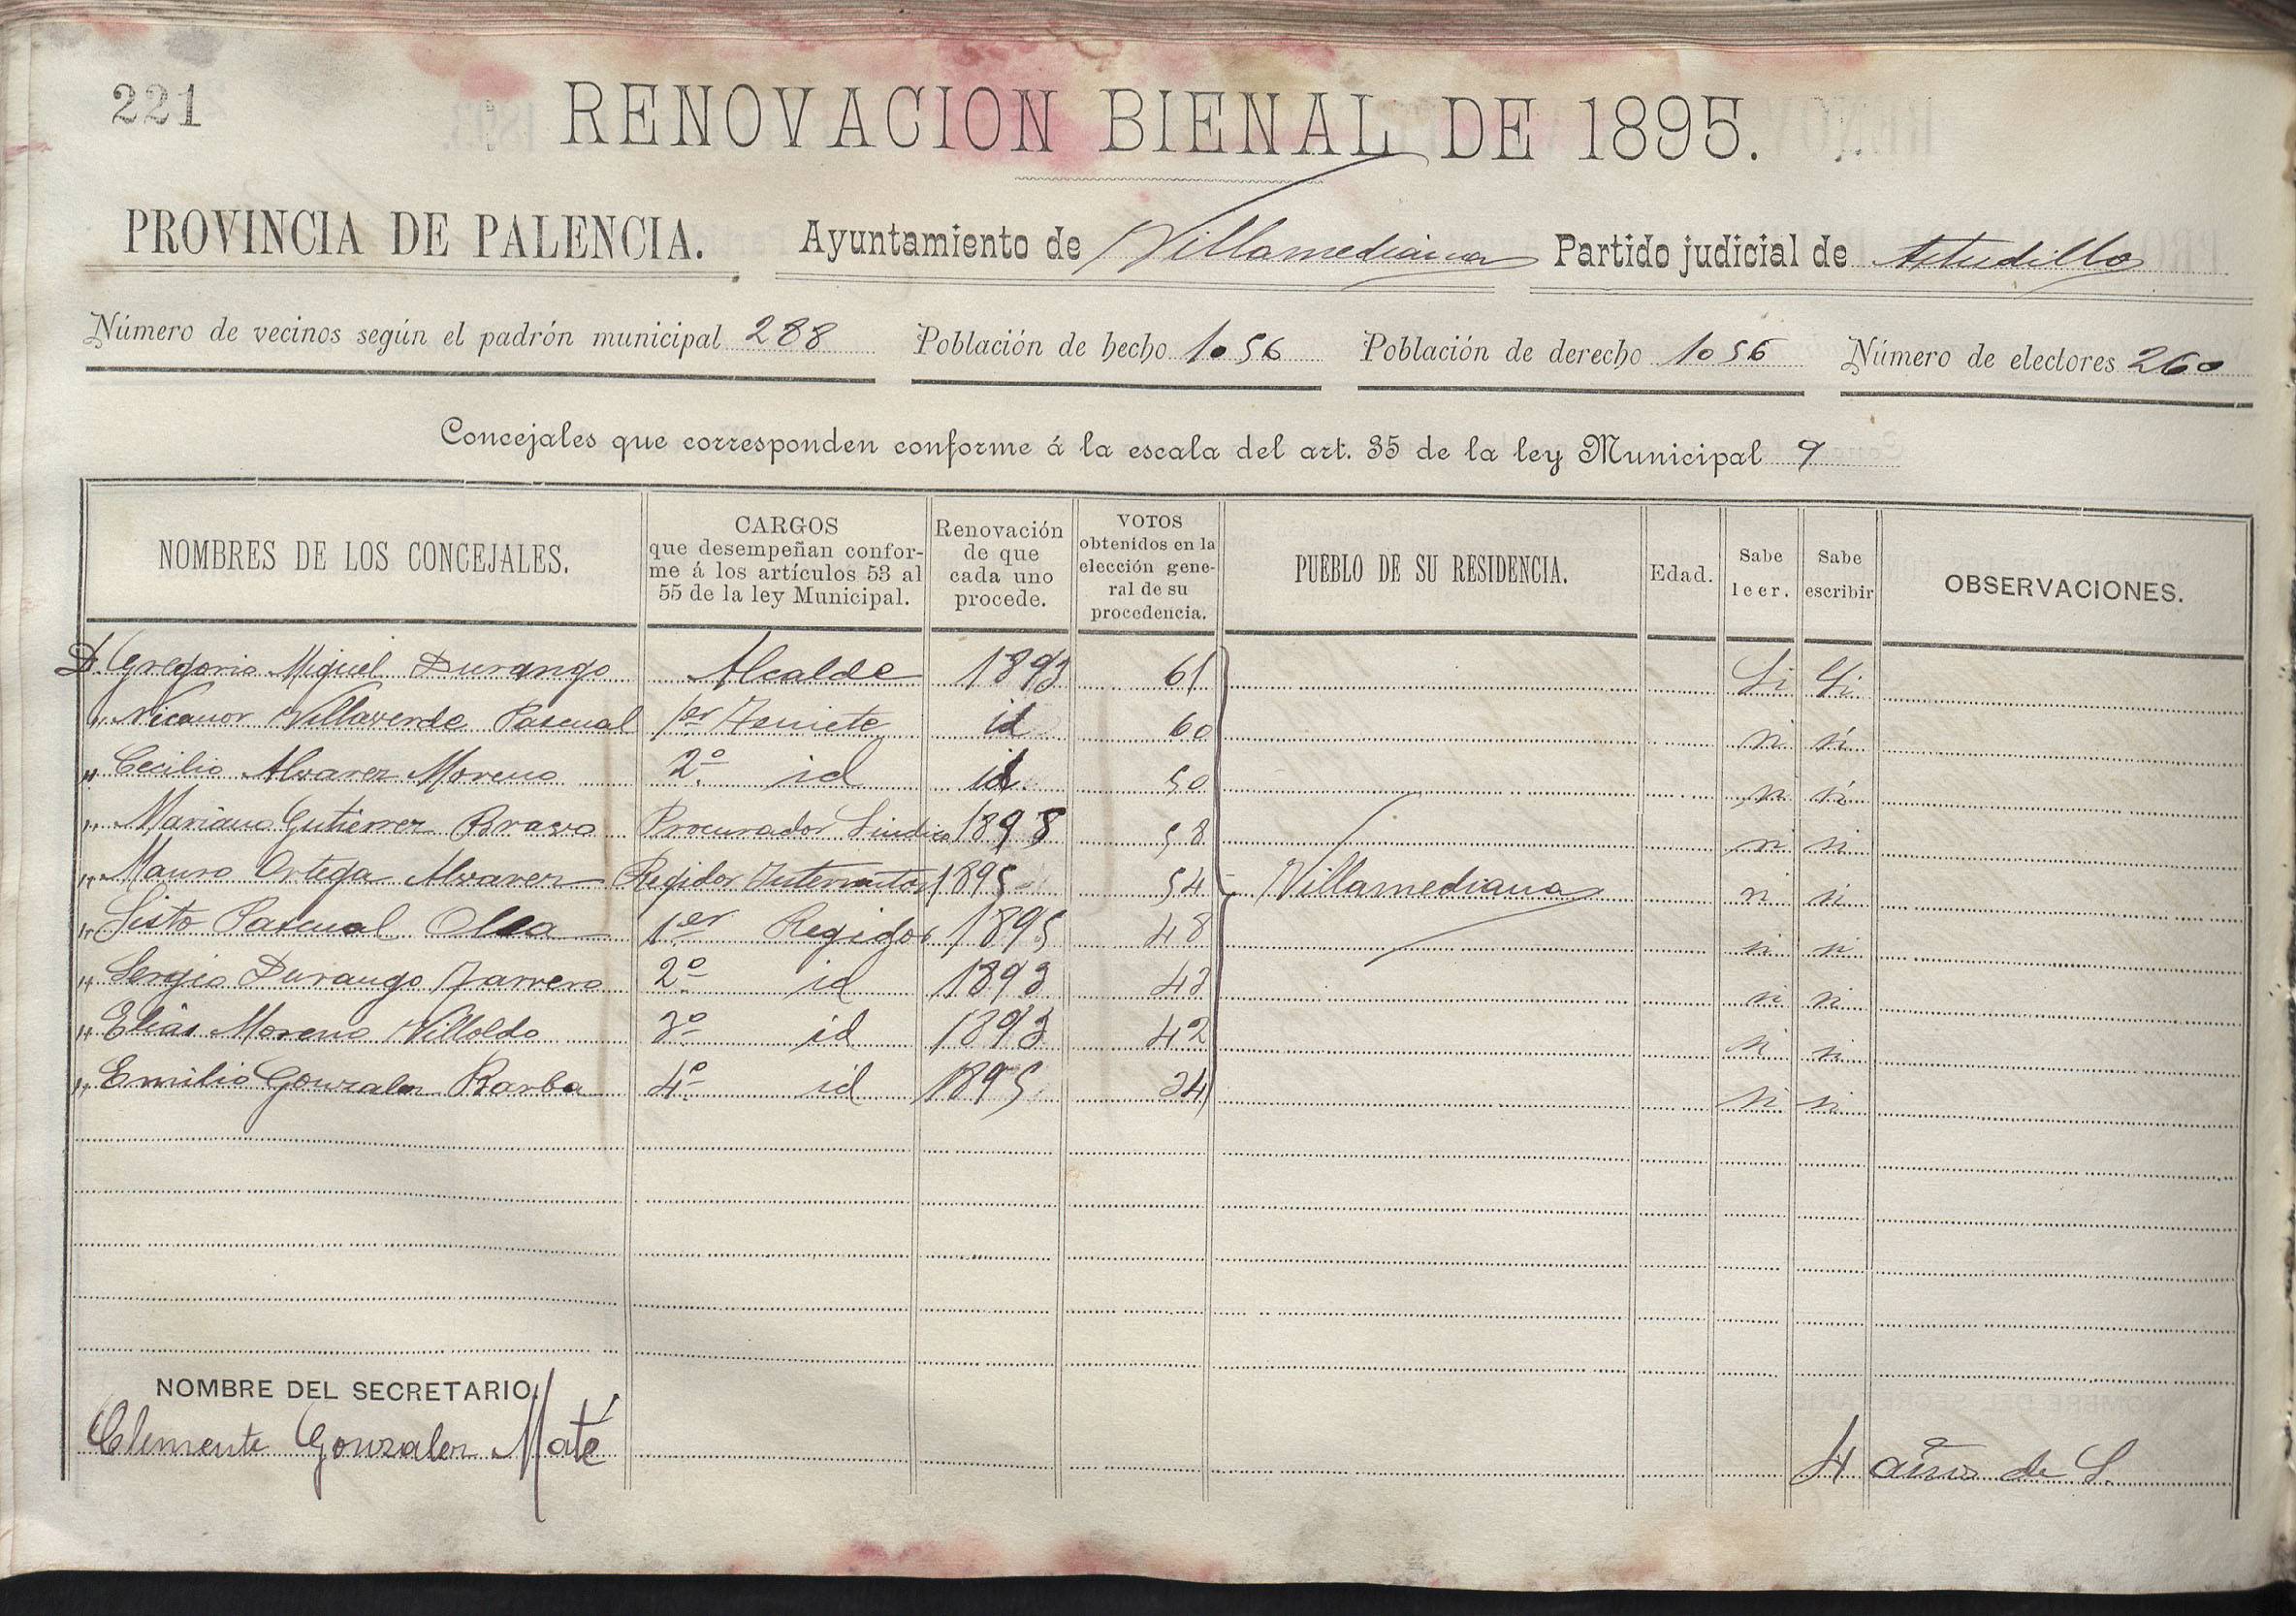 221
RENOVACION BIENAL DE 1895.
PROVINCIA DE PALENCIA. Ayuntamiento de Villamediana Partido judicial de Astudillo
Número de vecinos según el padrón municipal 288 Población de hecho 1056 Población de derecho 1056 Número de electores 260
Concejales que corresponden conforme á la escala del art. 35 de la ley Municipal 9
NOMBRES DE LOS CONCEJALES. CARGOS que desempeñan conforme á los artículos 53 al 55 de la ley Municipal. Renovación de que cada uno procede. VOTOS obtenidos en la elección general de su procedencia. PUEBLO DE SU RESIDENCIA. Edad. Sabe leer. Sabe escribir OBSERVACIONES.
D. Gregorio Miguel Durango Alcalde 1893 61 Si Si
" Nicanor Villaverde Pascual 1er Teniete id 60 si si
" Cecilio Alvarez Moreno 2º id id. 50 si si
" Mariano Gutierrez Bravo Procurador Sindico 1893 58 si si
" Mauro Ortega Alvarez Regidor Interventor 1895 54 Villamediana si si
" Sisto Pascual 1er Regidor 1895 48 si si
" Sergio Durango 2º id 1893 43 si si
" Elias Moreno Villoldo 3º id 1893 42 si si
" Emilio Gonzalez Barba 4º id 1895 34 si si
NOMBRE DEL SECRETARIO.
Clemente Gonzalez Maté 4 años de S.